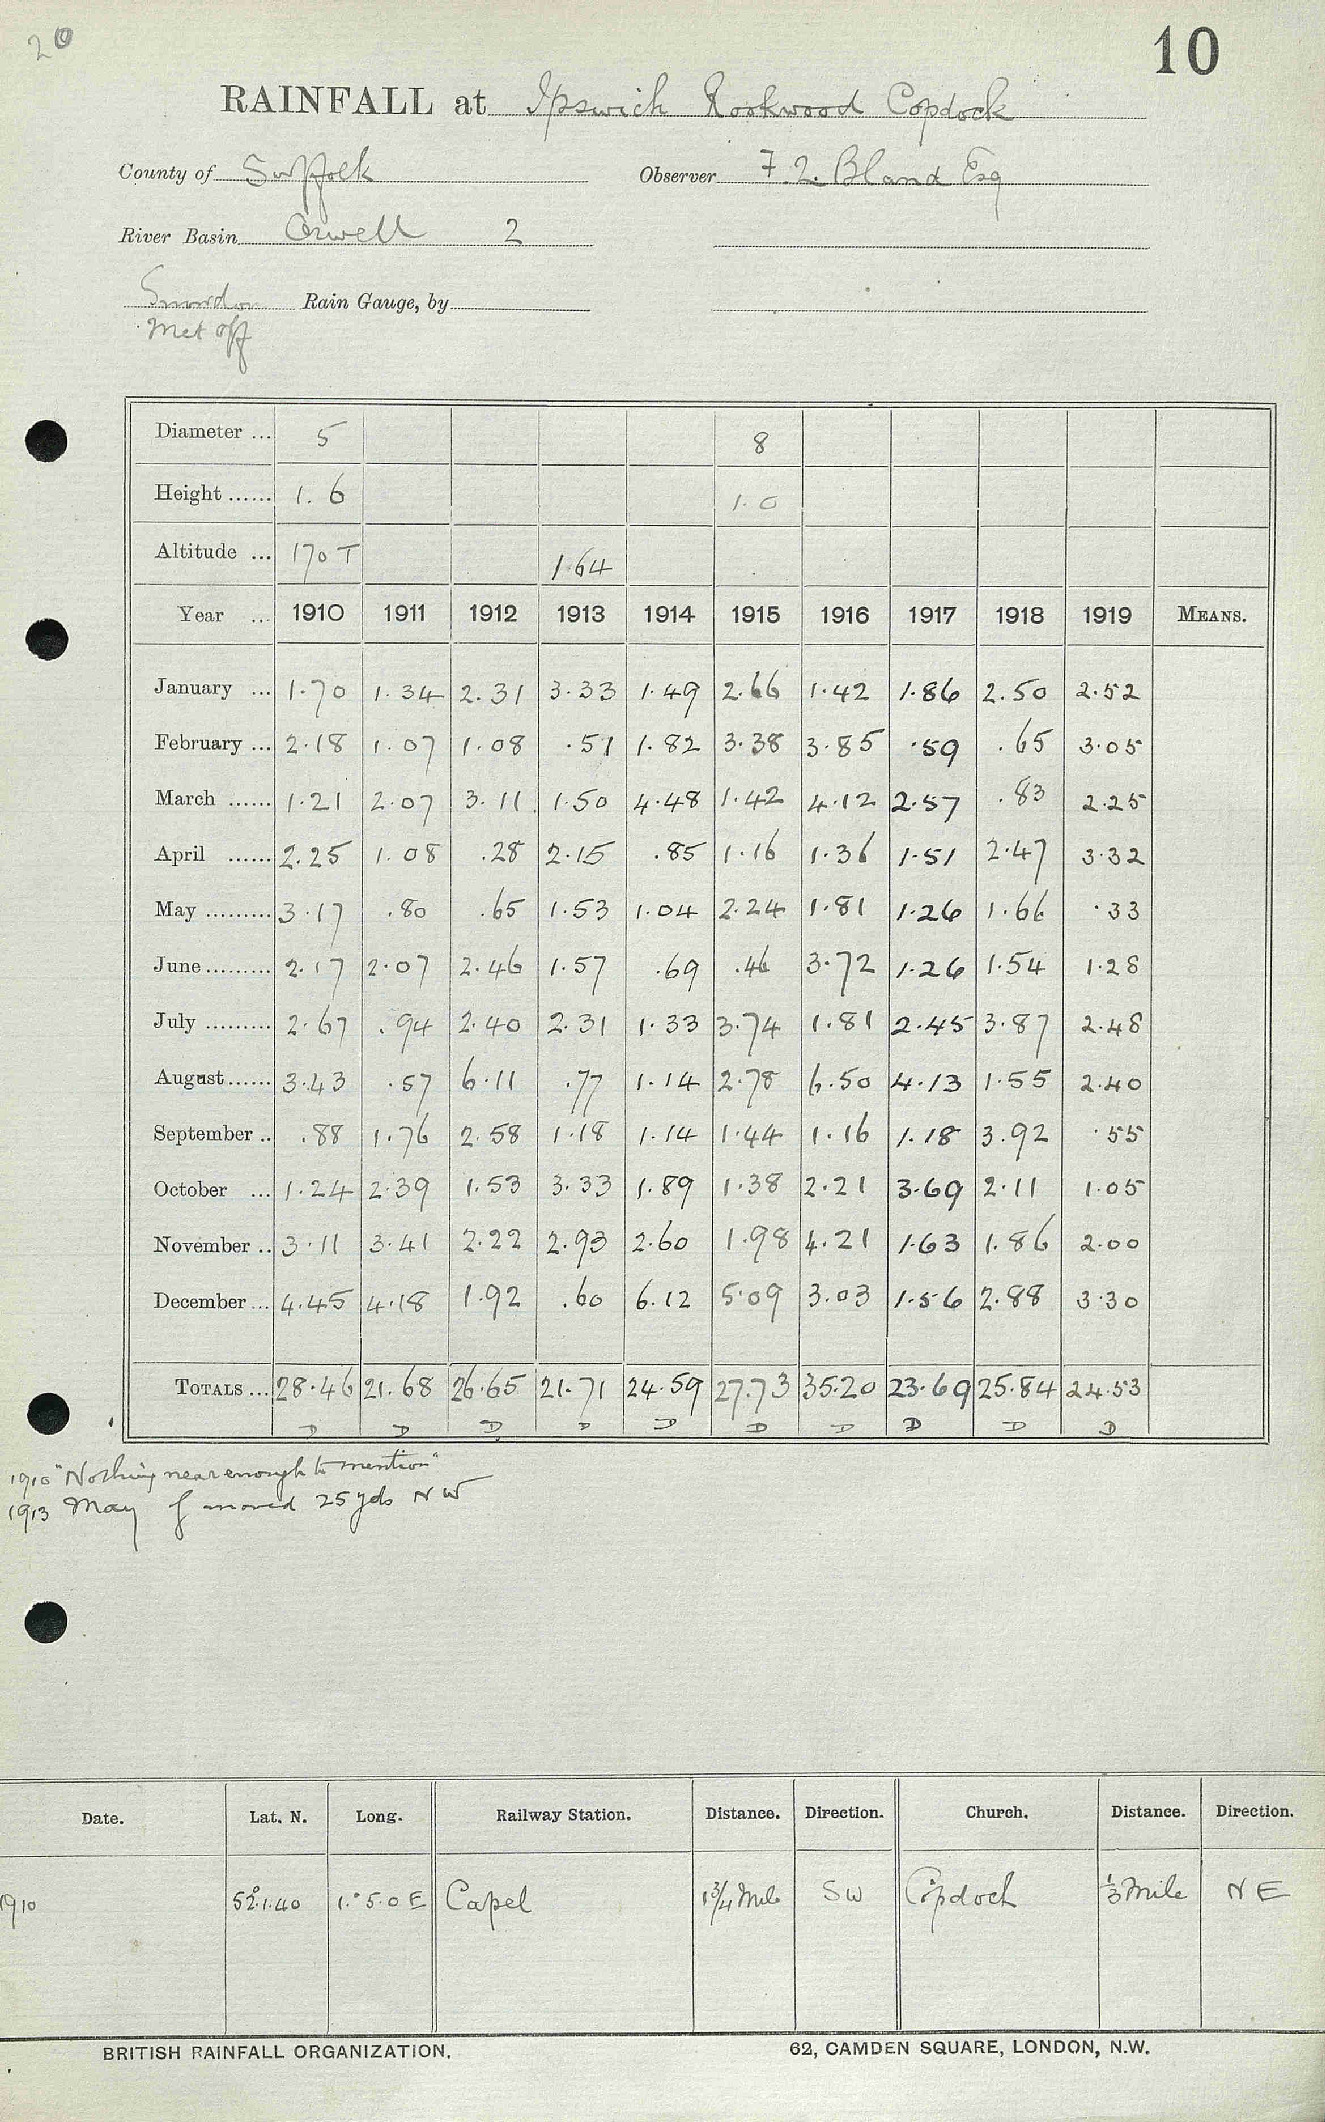 20
10
RAINFALL at Ipswich Rookwood Copdock
County of Suffolk Observer F. 2. Bland Esq
River Basin Orwell 2
Snowdon Rain Gauge, by
Met Off
Diameter ... 5 8
Height ...... 1.6 1.0
Altitude ... 170 T 164
Year ... 1910 1911 1912 1913 1914 1915 1916 1917 1918 1919 MEANS.
January ... 1.70 1.34 2.31 3.33 1.49 2.66 1.42 1.86 2.50 2.52
February ... 2.18 1.07 1.08 .51 1.82 3.38 3.85 .59 .65 3.05
March ...... 1.21 2.07 3.11 1.50 4.48 1.42 4.12 2.57 .83 2.25
April ...... 2.25 1.08 .28 2.15 .85 1.16 1.36 1.51 2.47 3.32
May ......... 3.17 .80 .65 1.53 1.04 2.24 1.81 1.26 1.66 .33
June ......... 2.17 2.07 2.46 1.57 .69 .46 3.72 1.26 1.54 1.28
July ......... 2.67 .94 2.40 2.31 1.33 3.74 1.81 2.45 3.87 2.48
August ...... 3.43 .57 6.11 .77 1.14 2.78 6.50 4.13 1.55 2.40
September .. .88 1.76 2.58 1.18 1.14 1.44 1.16 1.18 3.92 .55
October ... 1.24 2.39 1.53 3.33 1.89 1.38 2.21 3.69 2.11 1.05
November .. 3.11 3.41 2.22 2.93 2.60 1.98 4.21 1.63 1.86 2.00
December ... 4.45 4.18 1.92 .60 6.12 5.09 3.03 1.56 2.88 3.30
TOTALS ... 28.46 21.68 26.65 21.71 24.59 27.73 35.20 23.69 25.84 24.53
D D D D D D D D D D
1910 "Nothing near enough to mention"
1913 May g moved 25 yds NW
Date. Lat. N. Long. Railway Station. Distance. Direction. Church. Distance. Direction.
1910 52°.1.40 1.°5.0 E Capel 1 3/4 Mile SW Copdock 1/3 Mile NE
BRITISH RAINFALL ORGANIZATION. 62, CAMDEN SQUARE, LONDON, N.W.